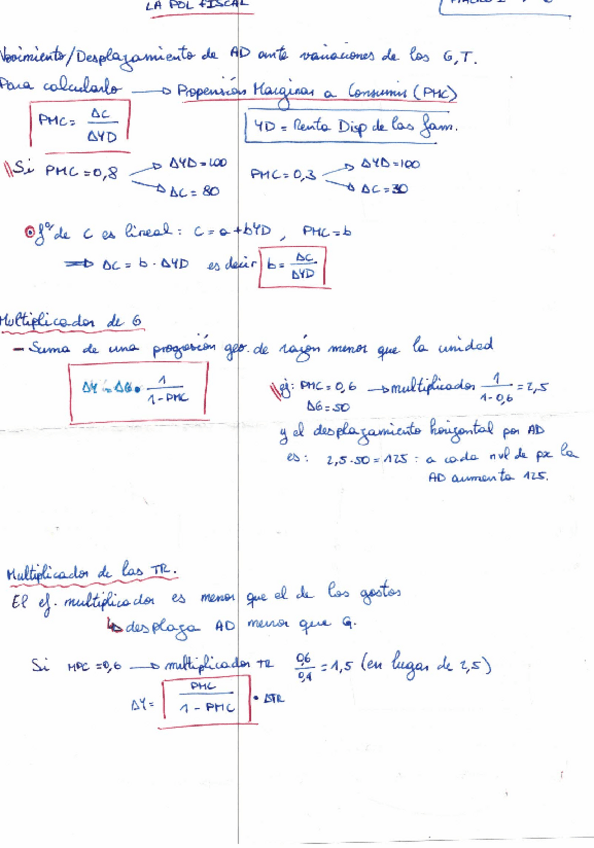 LA POL FISCAL
Movimiento/Desplazamiento de AD ante variaciones de los G,T.
Para calcularlo → Propensión Marginar a Consumir (PMC)
PMC = ΔC/ΔYD
YD = Renta Disp de las fam.
Si PMC = 0,8 → ΔYD = 100 → ΔC = 80
PMC = 0,3 → ΔYD = 100 → ΔC = 30
fº de C es lineal: C = a + bYD, PMC = b
⇒ ΔC = b · ΔYD es decir b = ΔC/ΔYD
Multiplicador de G
– Suma de una progresión geo. de razón menor que la unidad
ΔY = ΔG · 1/(1 - PMC)
ej: PMC = 0,6 → multiplicador 1/(1-0,6) = 2,5
ΔG = 50
y el desplazamiento horizontal por AD
es: 2,5 · 50 = 125 : a cada nvl de px la
AD aumenta 125.
Multiplicador de las TR.
El ef. multiplicador es menor que el de los gastos
↳ desplaza AD menor que G.
Si MPC = 0,6 → multiplicador TR 0,6/0,4 = 1,5 (en lugar de 2,5)
ΔY = PMC/(1 - PMC) · ΔTR